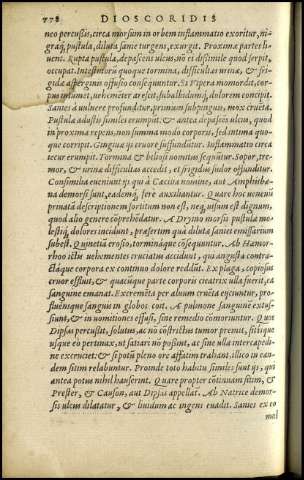 778 DIOSCORIDIS
neo percußis, circa morsum in orbem inflammatio exoritur, ni-
graq́; pustula, diluta sanie turgens, exurgit. Proximæ partes li-
uent. Rupta pustula, depascens ulcus, nō ei dissimile quod serpit,
occupat. Intestinorū quoque tormina, difficultas urinæ, & fri-
gida aspergimen offusio consequuntur. Si Vipera momorderit, cor-
pus intumet, uehemēter aresit, subalbidumq́; dolorem concipit.
Sanies à uulnere profunditur, primùm subpinguis, mox cruēta.
Pustulæ adustis similes erumpūt, & antea depascens ulcus, quod
in proxima repens, non summa modo corporis, sed intima quo-
que corripit. Gingiuæ ijs cruore suffunduntur. Inflammatio circa
iecur erumpit. Tormina & biliosi uomitus sequūtur. Sopor, tre-
mor, & urinæ difficultas accedit, et frigidus sudor offunditur.
Consimilia eueniunt ijs qui à Cæcilia nomine, aut Amphisbe-
na demorsi sunt, eademq́; ferè auxiliantur. Quare hoc uenenū
priuatā descriptionem sortitum non est, neq; uisum est dignum,
quod alio genere cōprehēdatur. A Dryino morsis pustulæ mo-
lestiq́; dolores incidunt, præsertim quū diluta sanies emissarium
subest. Quinetiā erosio, torminaque cōsequuntur. Ab Hæmor-
rhoo ictis uehementes cruciatus accidunt, qui angusta contra-
ctaque corpora ex continuo dolore reddūt. Ex plaga, copiosus
cruor effluit, & quacūque parte corporis cicatrix ulla fuerit, ea
sanguine emanat. Excremēta per aluum cruēta egeruntur, pro-
fluuiumque sanguis in globos coit. A pulmone sanguinē extus-
siunt, & in uomitiones effusi, sine remedio commoriuntur. Quos
Dipsas percusit, solutus, ac nō cōstrictus tumor premit, sitique
usque eò pertinax, ut satiari nō poßint, ac sine ulla intercapedi-
ne excruciet: & si potū pleno ore affatim trahant, illico in ean-
dem sitim relabuntur. Proinde toto habitu similes sunt ijs, qui
antea potus nihil hauserint. Quare propter cōtinuam sitim, &
Prester, & Causon, aut Dipsas appellat. Ab Natrice demor-
sis ulcus dilatatur, & liuidum ac ingens euadit. Sanies ex eo
mul